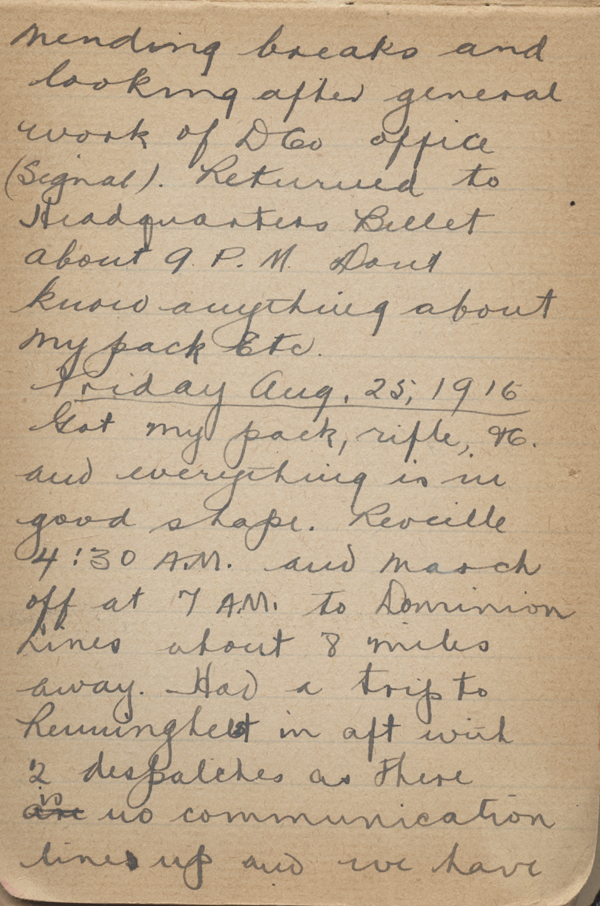 mending breaks and
looking after general
work of D Co office
(Signal). Returned to
Headquarters Billet
about 9 P. M. Dont
know anything about
my pack Etc.
Friday Aug. 25, 1916
Got my pack, rifle, &c.
and everything is in
good shape. Reveille
4:30 A.M. and march
off at 7 A.M. to Dominion
Lines about 8 miles
away. Had a trip to
Renninghelst in aft with
2 despatches as there
are is no communication
lines up and we have